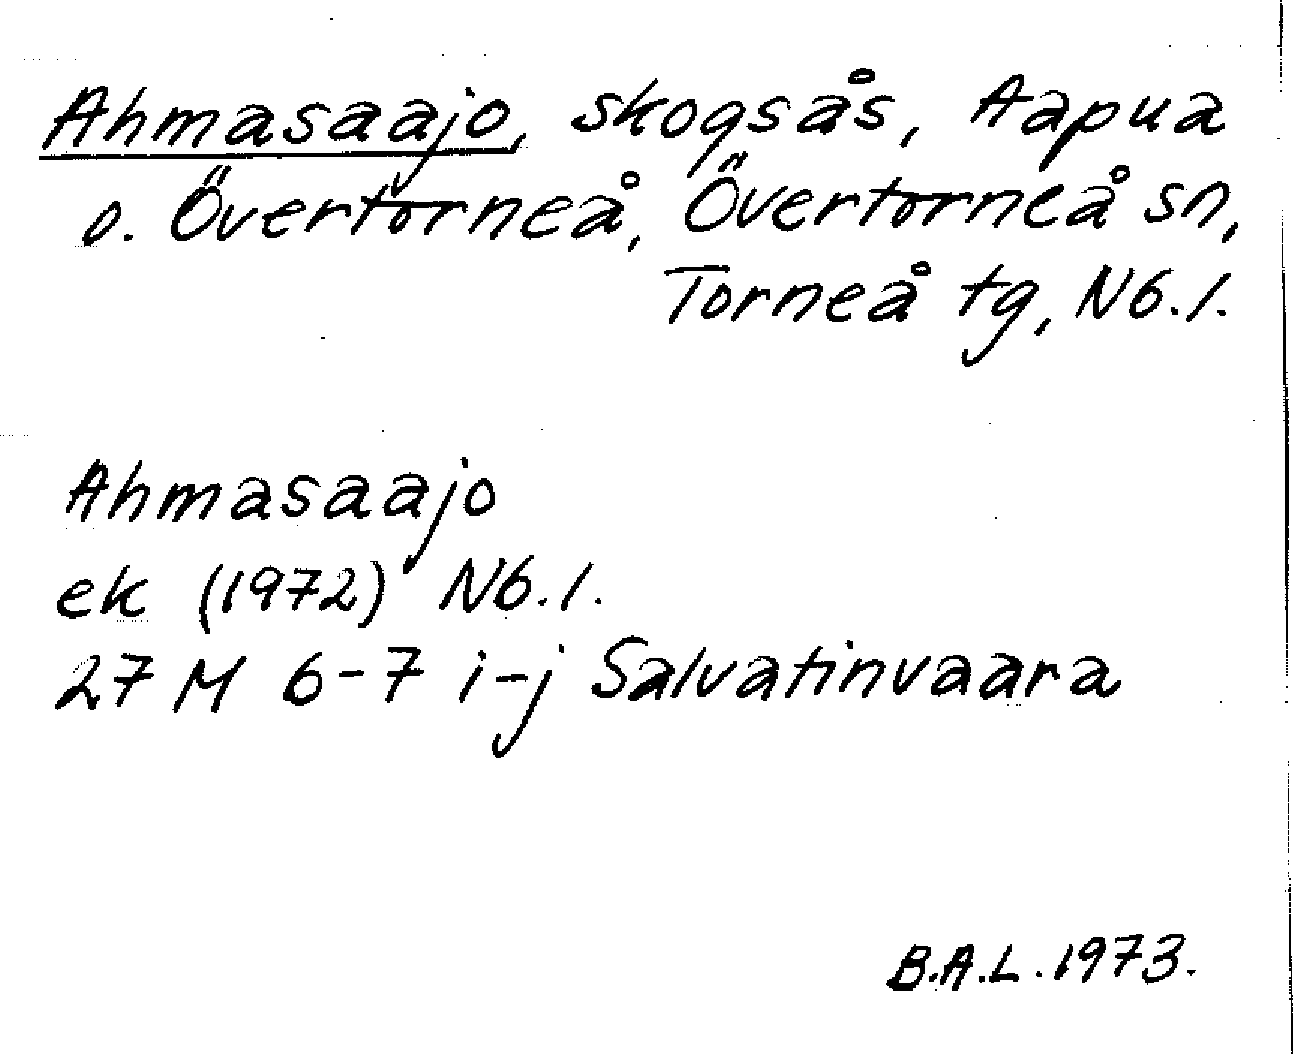 Ahmasaajo, skogsås, Aapua
o. Övertorneå, Övertorneå sn,
Torneå tg, Nb.l.
Ahmasaajo
ek (1972) Nb.l.
27 M 6-7 i-j Salvatinvaara
B.A.L. 1973.